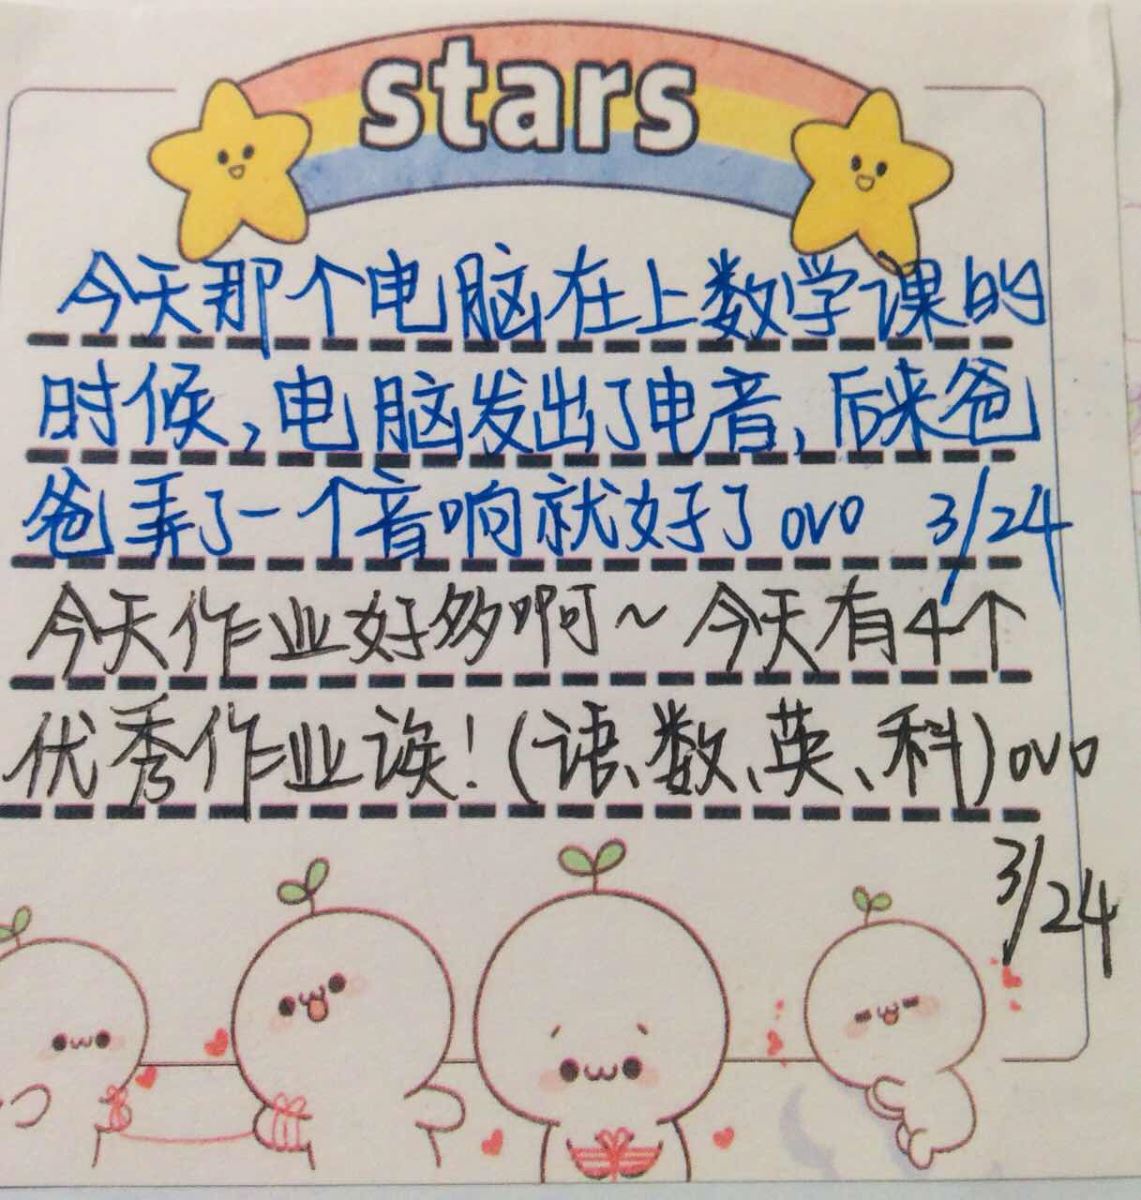 stars
今天那个电脑在上数学课的
时候,电脑发出了电音,后来爸
爸弄了一个音响就好了ovo 3/24
今天作业好多啊~今天有4个
优秀作业诶!(语、数、英、科)ovo
3/24